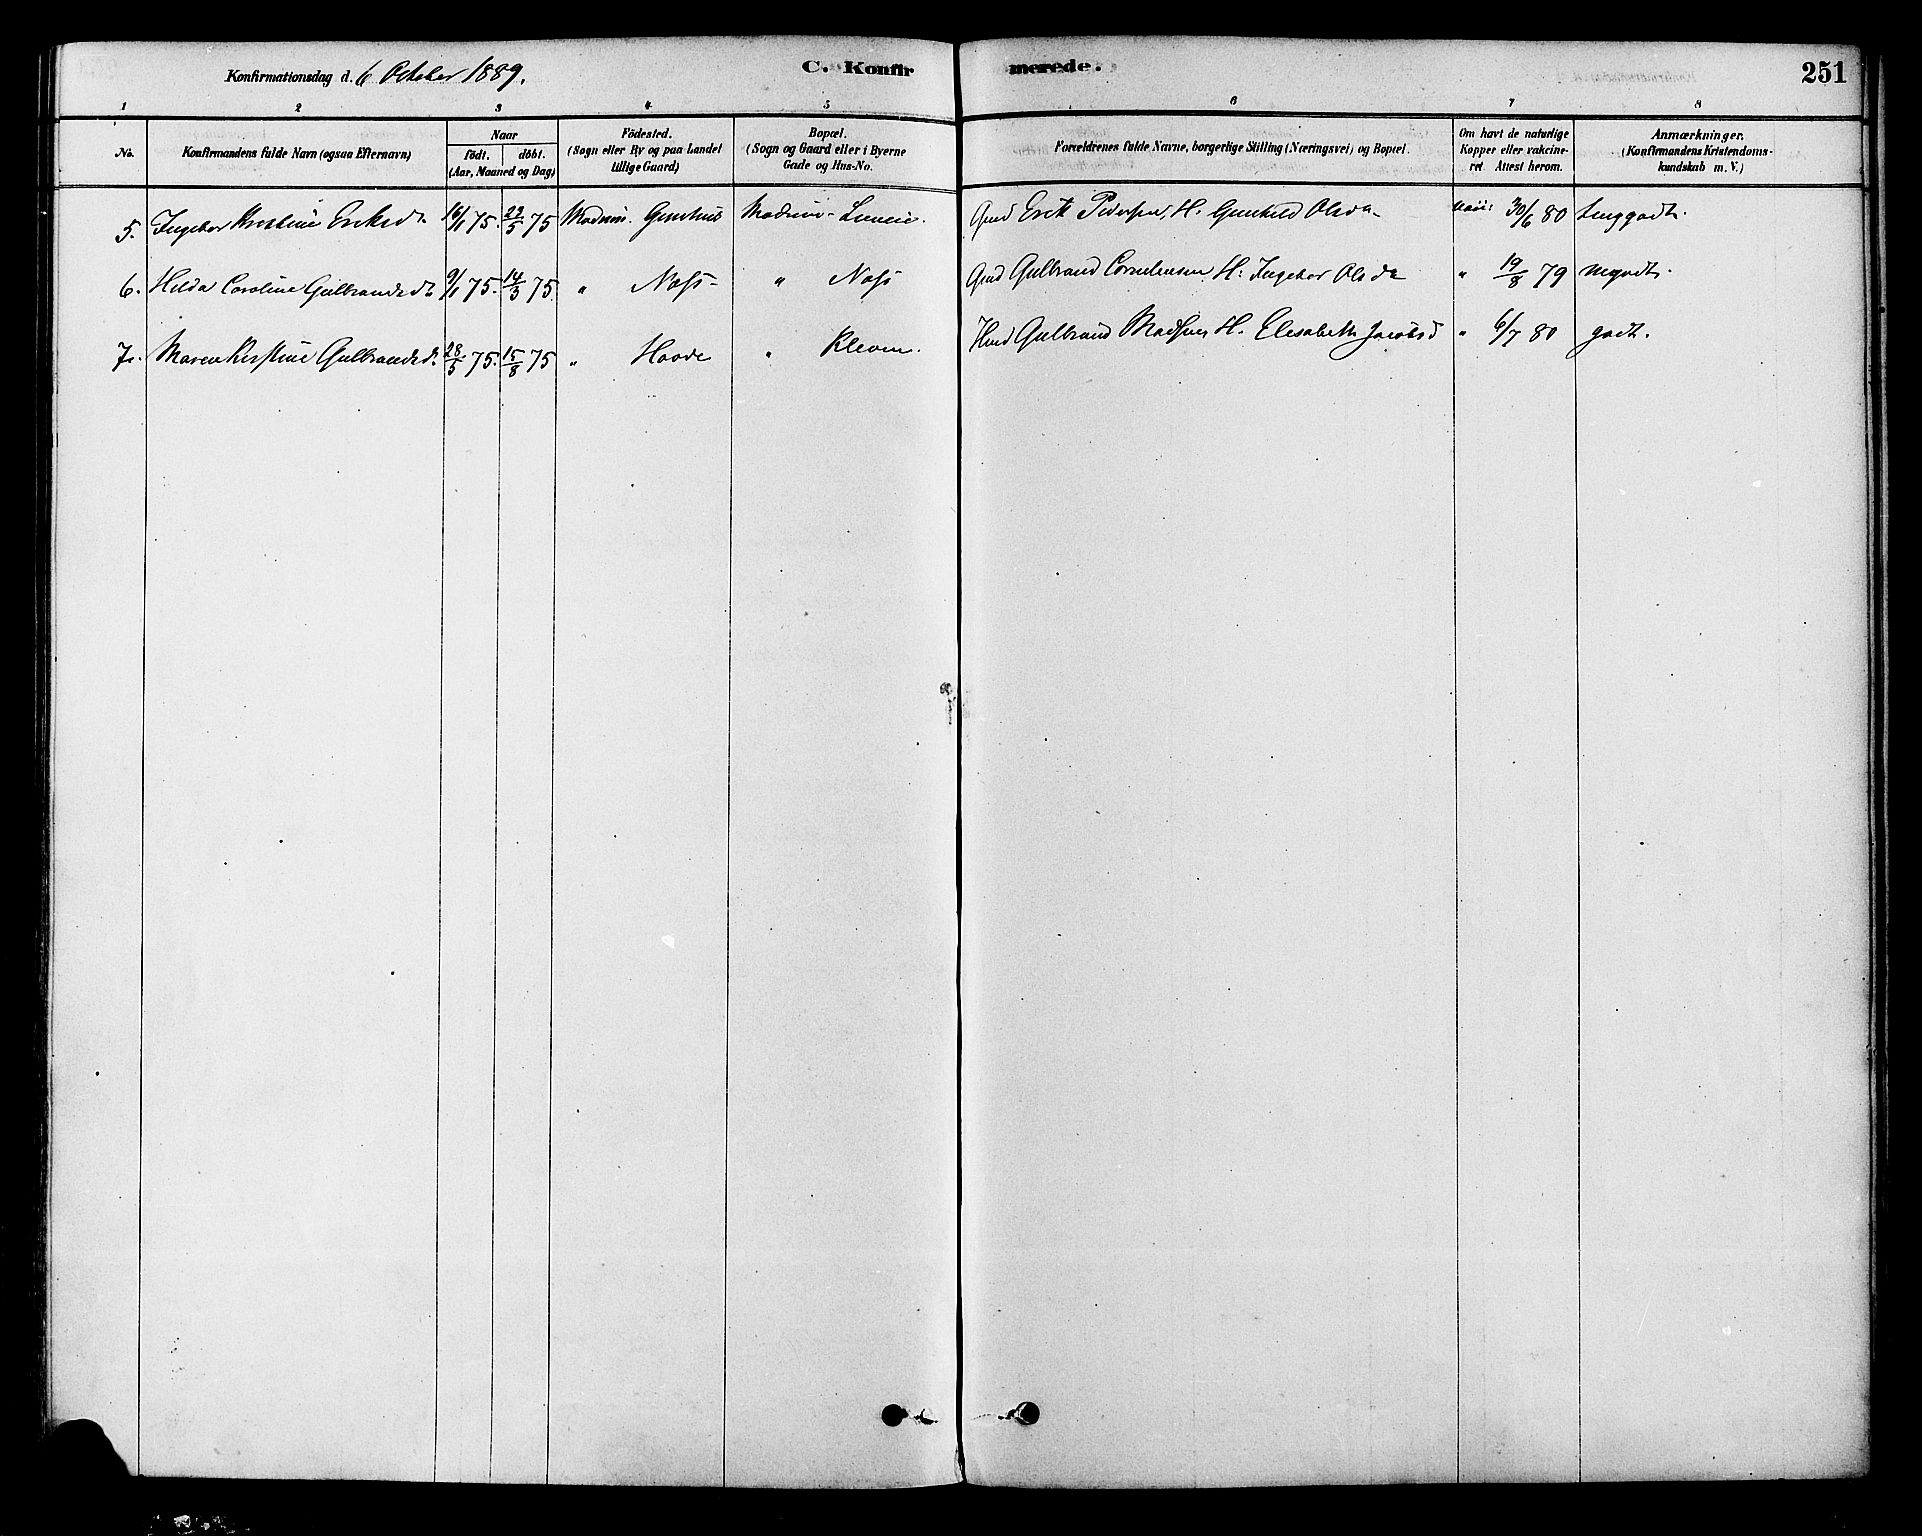 Konfirmationsdag d. 6 October 1889. C. Konfirmerede. 251
1 2 3 4 5 6 7 8
No. Konfirmandens fulde Navn (ogsaa Efternavn) Naar födt. döbt. (Aar, Maaned og Dag) Födested. (Sogn eller By og paa Landet tillige Gaard) Bopæl. (Sogn og Gaard eller i Byerne Gade og Hus-No. Forældrenes fulde Navne, borgerlige Stilling (Næringsvei) og Bopæl. Om havt de naturlige Kopper eller vakcineret Attest herom. Anmærkninger. (Konfirmandens Kristendomskundskab m. V.)
5. Ingebor Kristine Eriksd. 16/1 75. 22/5 75 Modum. Modum Erik Pedersen, H. Gunhild Olsda 30/6 80
6. Hilda Caroline Gulbrandsdt 9/1 75. 14/3 75 " Næss " Næss Gmd Gulbrand Cornelensen H: Ingebor Olsda " 19/8 79 mgodt.
7. Maren Kirstine Gulbrandsd. 28/5 75. 15/8 75 " Hovde " Kleven. Hmd Gulbrand Madsen H. Elisabeth Jacobsd " 6/7 80 godt.